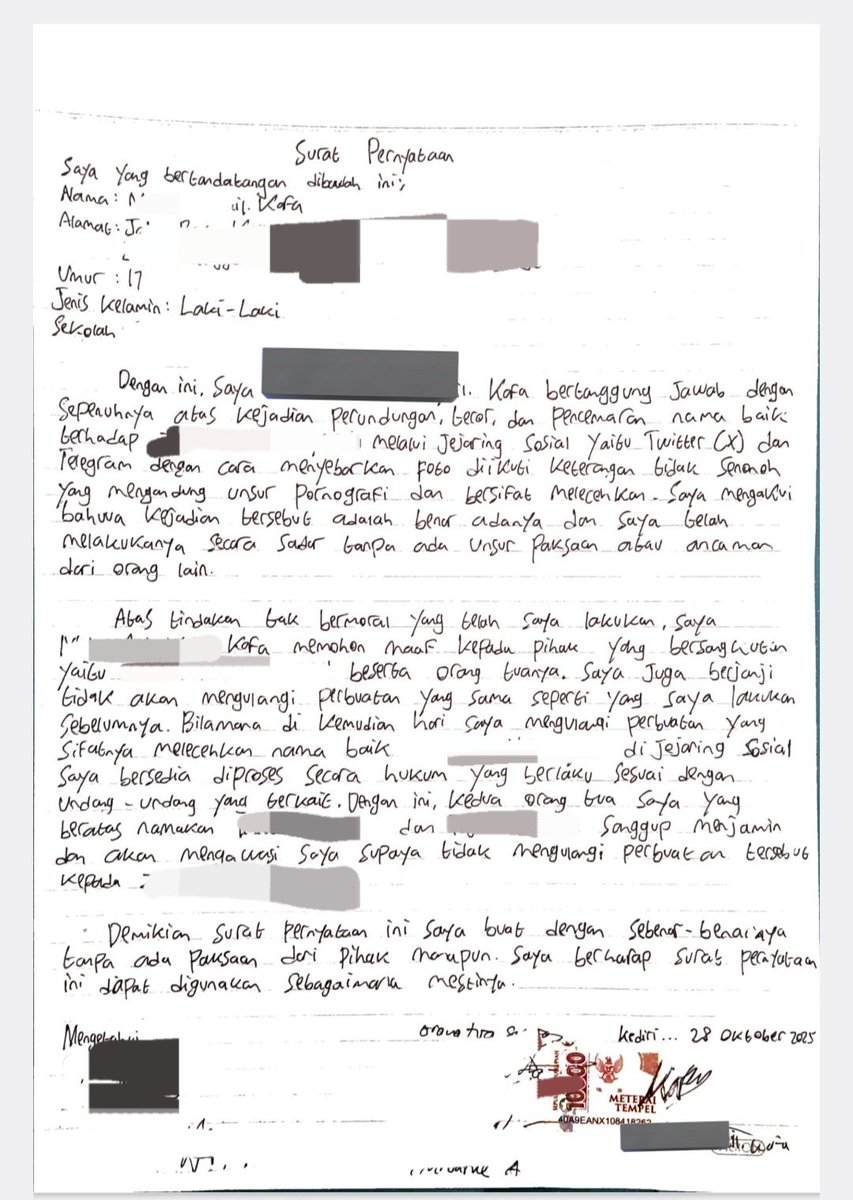 Surat Pernyataan
Saya yang bertandatangan dibawah ini;
Nama: Kofa
Alamat:
Umur : 17
Jenis Kelamin: Laki-Laki
Sekolah
Dengan ini, Saya Kofa bertanggung Jawab dengan
Sepenuhnya atas kejadian perundungan, teror, dan pencemaran nama baik
terhadap melalui Jejaring Sosial Yaitu Twitter (X) dan
Telegram dengan cara menyebarkan Foto diikuti keterangan tidak Senonoh
Yang mengandung unsur Pornografi dan bersifat melecehkan. Saya mengakui
bahwa Kejadian tersebut adalah benar adanya dan Saya telah
melakukanya Secara Sadar tanpa ada unsur Paksaan atau ancaman
dari orang lain.
Atas tindakan tak bermoral yang telah saya lakukan, Saya
Kofa memohon maaf kepada pihak yang bersangkutan
Yaitu beserta orang tuanya. Saya Juga berjanji
tidak akan mengulangi perbuatan yang sama seperti yang saya lakukan
Sebelumnya. Bilamana di kemudian hari saya mengulangi perbuatan yang
Sifatnya melecehkan nama baik di Jejaring Sosial
Saya bersedia diproses secara hukum yang berlaku sesuai dengan
Undang-undang yang terkait. Dengan ini, kedua orang tua saya yang
beratas namakan dan Sanggup menjamin
dan akan mengawasi saya supaya tidak mengulangi perbuatan tersebut
kepada :
Demikian Surat pernyataan ini saya buat dengan sebenar-benarnya
tanpa ada paksaan dari pihak manapun. Saya berharap surat pernyataan
ini dapat digunakan sebagaimana mestinya.
Mengetahui
Kediri... 28 Oktober 2025
10000
METERAI
TEMPEL